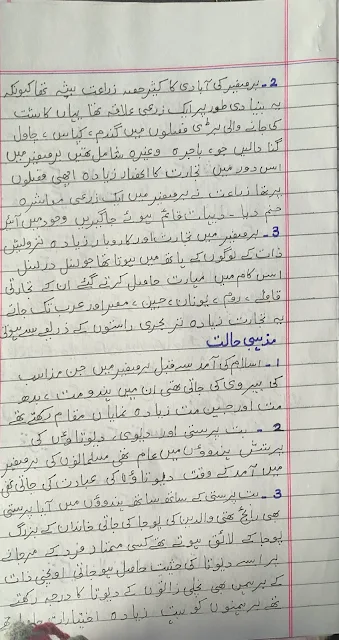 2۔ برصغیر کی آبادی کا کثیر حصہ زراعت پیشہ تھا کیونکہ
یہ بنیادی طور پر ایک زرعی علاقہ تھا یہاں کاشت
کی جانے والی بڑی فصلوں میں گندم، کپاس، چاول
گنا دالیں جو، باجرہ وغیرہ شامل تھیں برصغیر میں
اس دور میں تجارت کا انحصار زیادہ انہی فصلوں
پر تھا زراعت نے برصغیر میں ایک زرعی معاشرہ
جنم دیا۔ دیہات قائم ہوئے جاگیریں وجود میں آئیں
3۔ برصغیر میں تجارت اور کاروبار زیادہ تر ویش
ذات کے لوگوں کے ہاتھ میں ہوتا تھا جو نسل در نسل
اس کام میں مہارت حاصل کرتے گئے ان کے تجارتی
قافلے، روم، یونان، چین، مصر اور عرب تک جاتے
یہ تجارت زیادہ تر بحری راستوں کے ذریعے سے ہوتی
مذہبی حالت
1۔ اسلام کی آمد سے قبل برصغیر میں جن مذاہب
کی پیروی کی جاتی تھی ان میں ہندو مت، بدھ
مت اور جین مت زیادہ نمایاں مقام رکھتے تھے
2۔ بت پرستی اور دیوی، دیوتاؤں کی
پرستش ہندوؤں میں عام تھی مسلمانوں کی برصغیر
میں آمد کے وقت دیوتاؤں کی عبادت کی جاتی تھی
3۔ بت پرستی کے ساتھ ساتھ ہندوؤں میں آبا پرستی
بھی رائج تھی والدین کی پوجا کی جاتی خاندان کے بزرگ
پوجا کے لائق ہوتے تھے کسی ممتاز فرد کے مر جانے
پر اسے دیوتا کی حیثیت حاصل ہو جاتی اونچی ذات
کے برہمن بھی نچلی ذاتوں کے دیوتا کا درجہ رکھتے
تھے برہمنوں کو بہت زیادہ اختیارات حاصل تھے